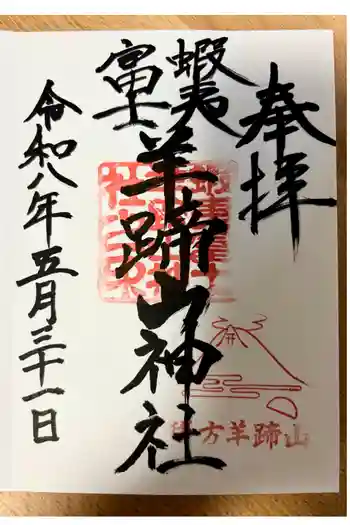 奉拝
蝦夷
富士
羊蹄山神社
令和八年五月三十一日
後方羊蹄山